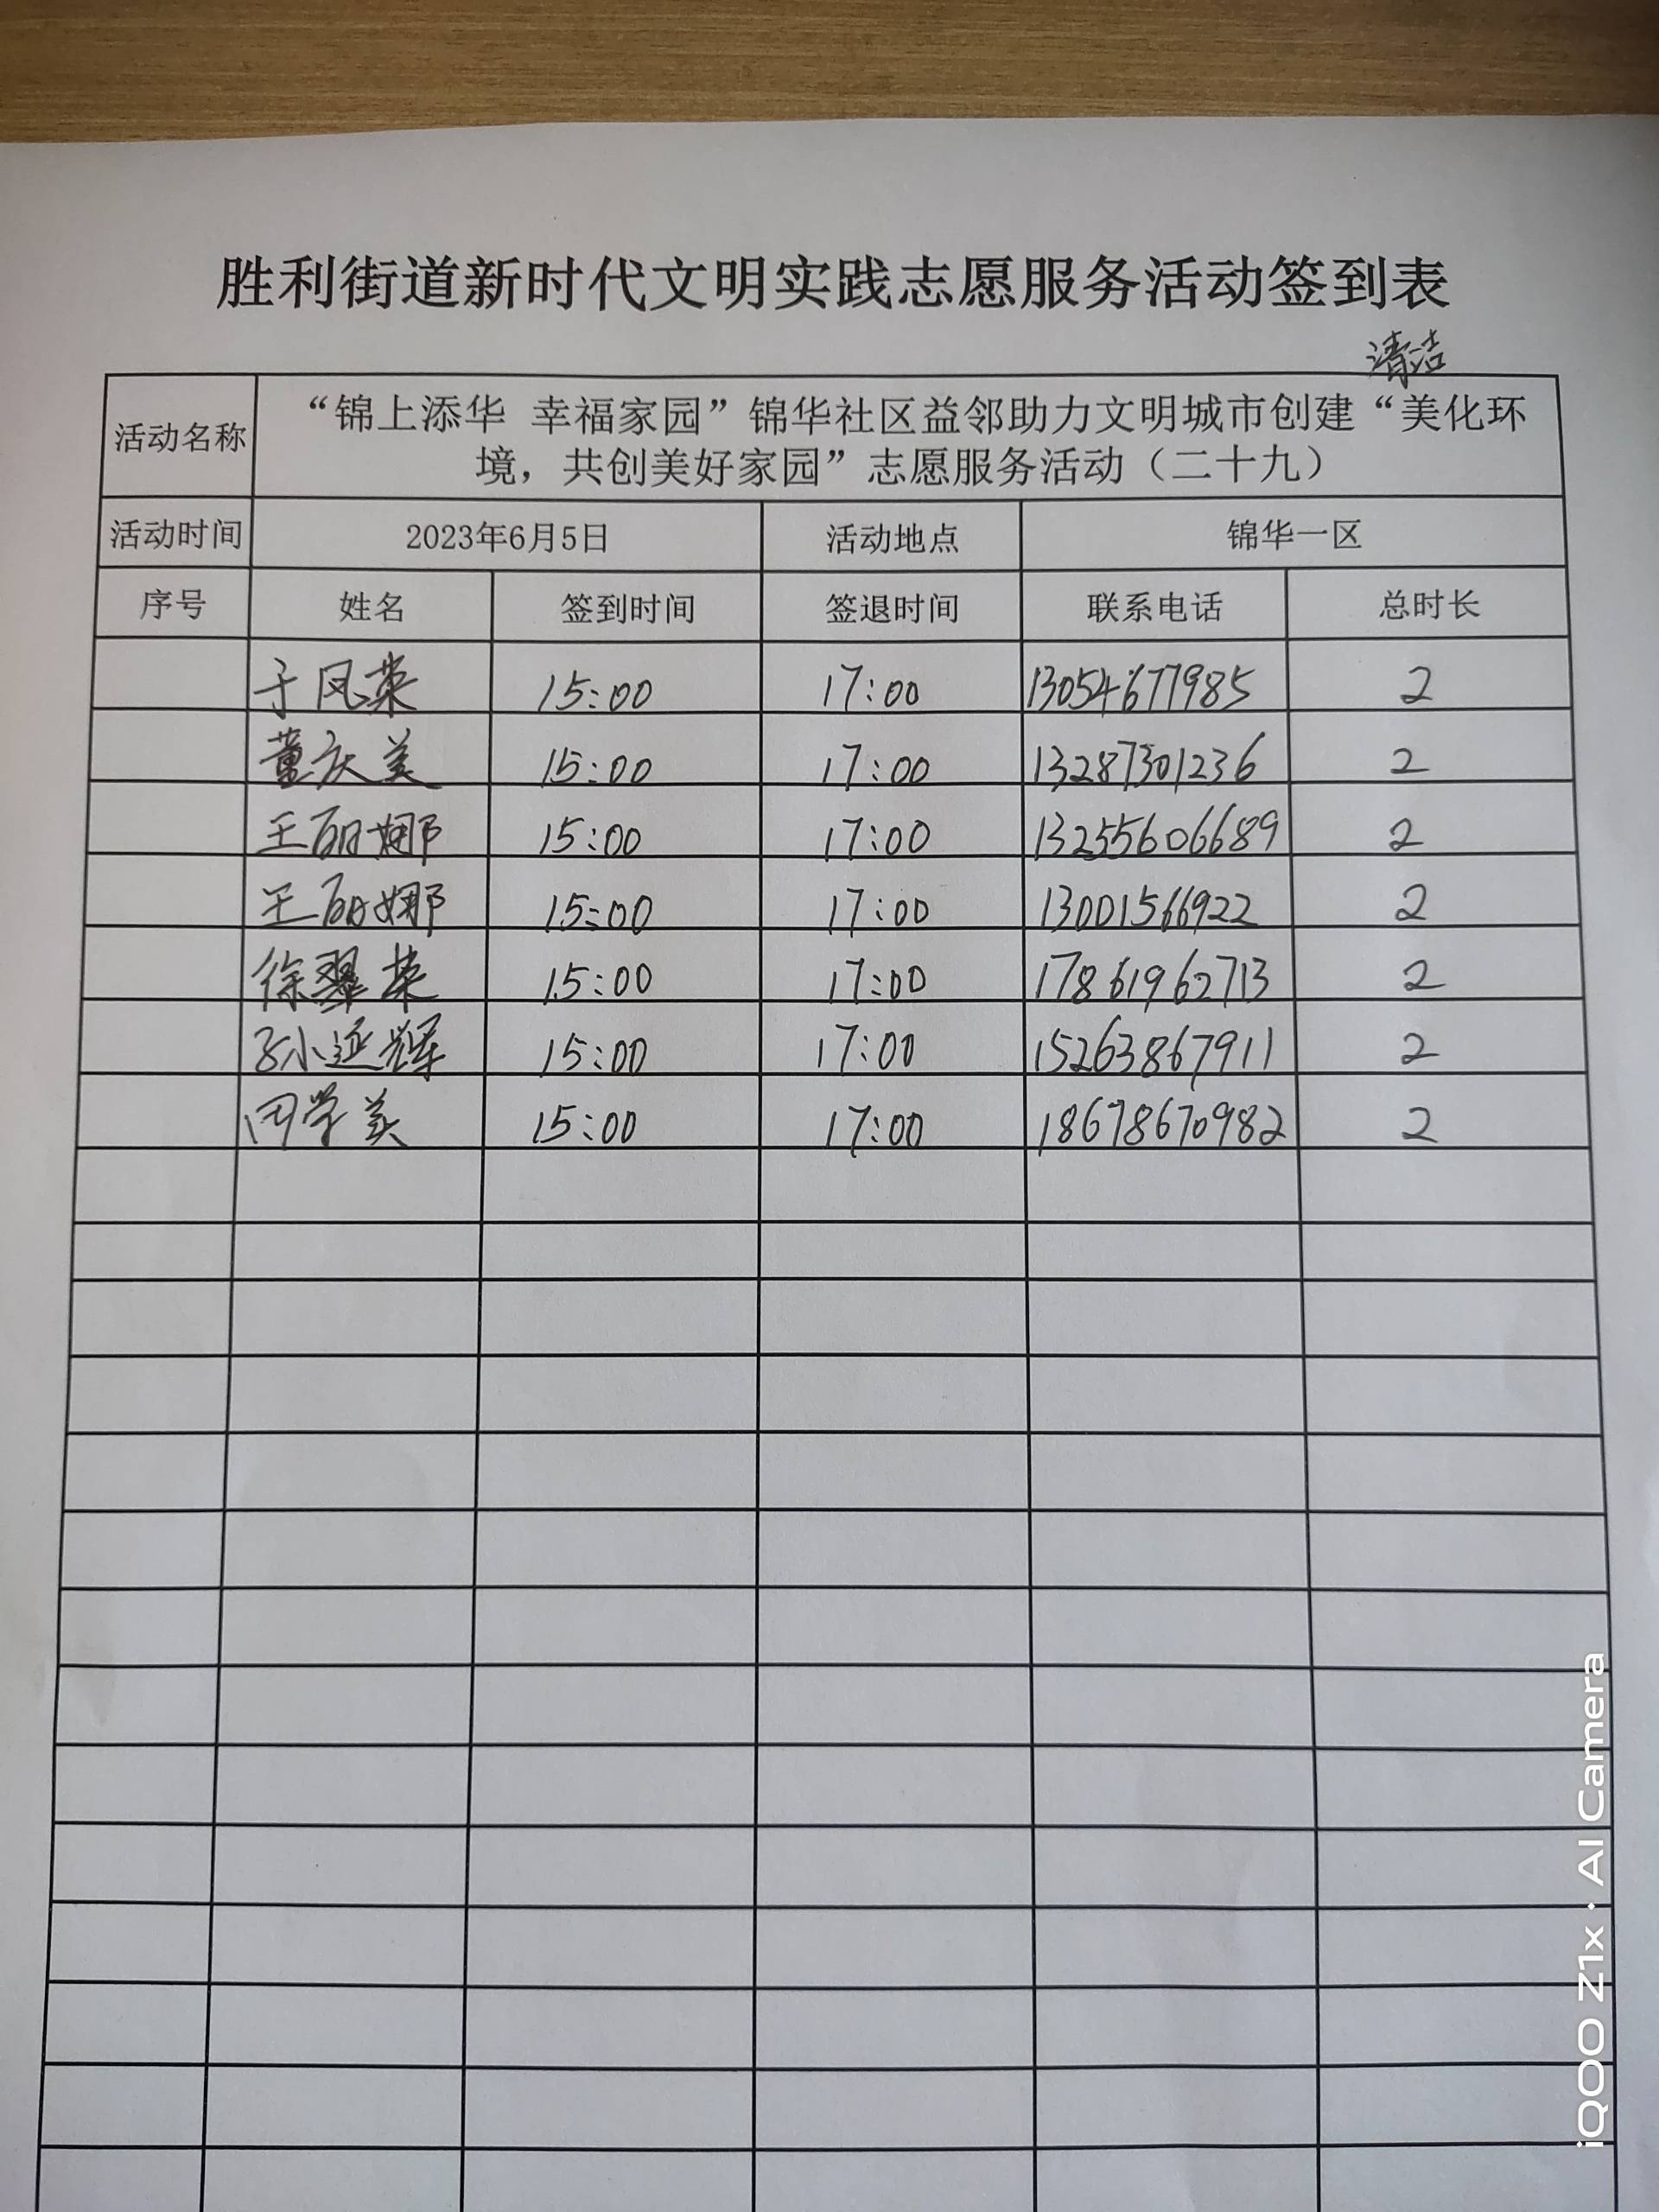 胜利街道新时代文明实践志愿服务活动签到表
清洁
活动名称 “锦上添华 幸福家园”锦华社区益邻助力文明城市创建“美化环
境，共创美好家园”志愿服务活动（二十九）
活动时间 2023年6月5日 活动地点 锦华一区
序号 姓名 签到时间 签退时间 联系电话 总时长
于凤荣 15:00 17:00 13054677985 2
董庆美 15:00 17:00 13287301236 2
王丽娜 15:00 17:00 13255606689 2
王丽娜 15:00 17:00 13001566922 2
徐翠荣 15:00 17:00 17861962713 2
孙延辉 15:00 17:00 15263867911 2
田学美 15:00 17:00 18678670982 2
iQOO Z1x · AI Camera